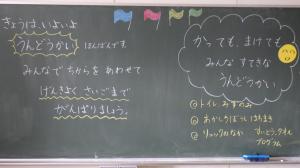 きょうは、いよいよ
うんどうかい ほんばんです。
みんなで ちからを あわせて
げんきよく さいごまで
がんばりましょう。
かっても、まけても
みんな すてきな
うんどうかい
トイレ、みずのみ
あかしろぼうし はちまき
リュックのなか すいとう、タオル
プログラム